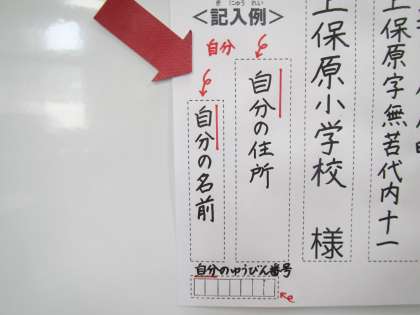 き にゅう れい
＜記入例＞
上保原字無苦代内十一
上保原小学校 様
自分
自分の住所
自分の名前
自分のゆうびん番号